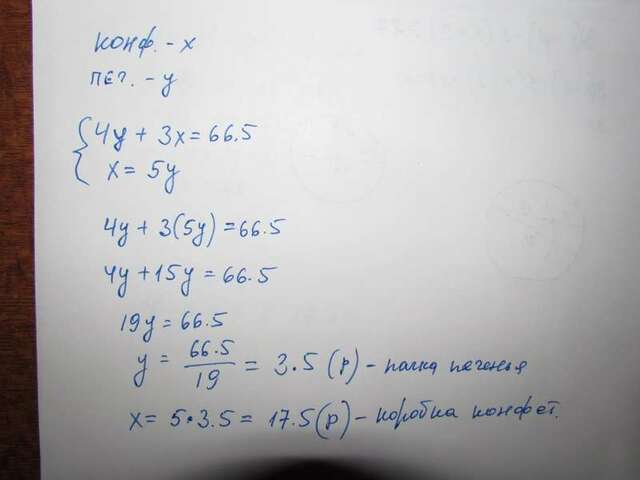 конф. - x
печ. - y
4y + 3x = 66.5
x = 5y
4y + 3(5y) = 66.5
4y + 15y = 66.5
19y = 66.5
y = 66.5 / 19 = 3.5 (р) - пачка печенья
x = 5 • 3.5 = 17.5 (р) - коробка конфет.